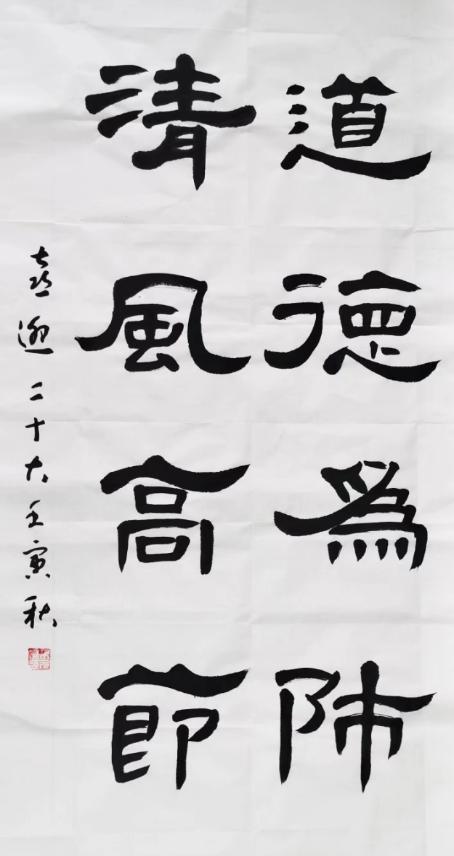 道德為師
清風高節
喜迎二十大壬寅秋